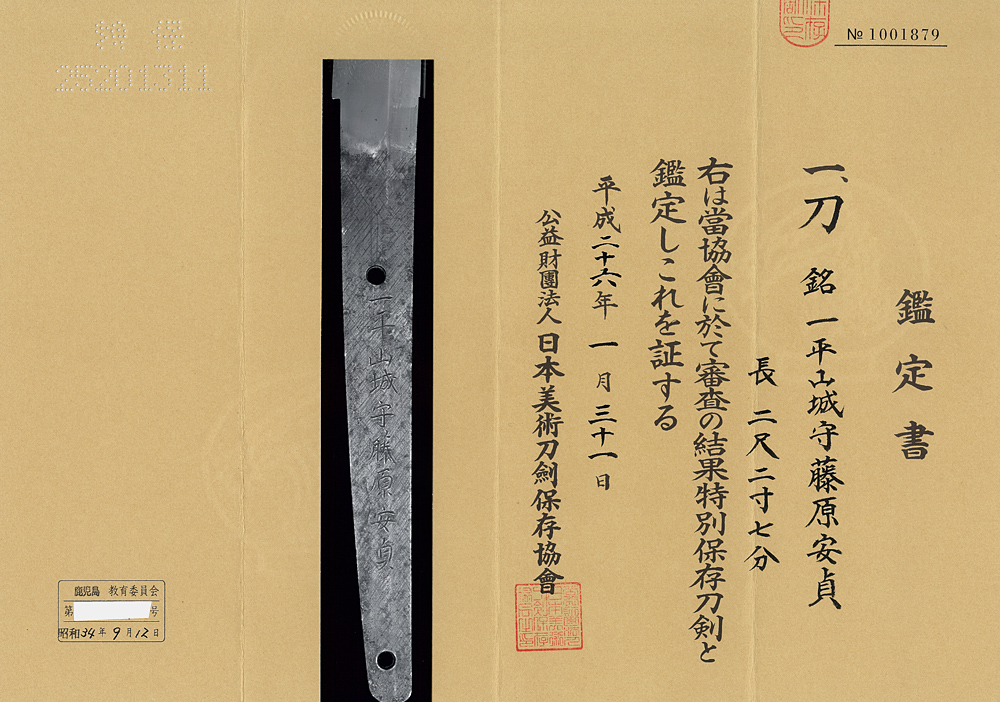 № 1001879
鑑定書
一、刀 銘 一平山城守藤原安貞
長 二尺二寸七分
右は當協會に於て審査の結果特別保存刀剣と
鑑定しこれを証する
平成二十六年 一月 三十一日
公益財團法人 日本美術刀劍保存協會
一平山城守藤原安貞
特保
25201311
鹿児島 教育委員会
第 号
昭和34年9月12日